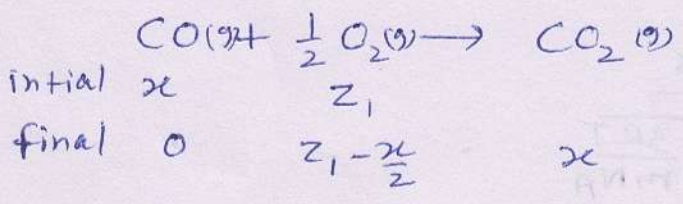 CO(g)+ 1/2 O₂(g) → CO₂(g)
intial x z₁
final 0 z₁-x/2 x